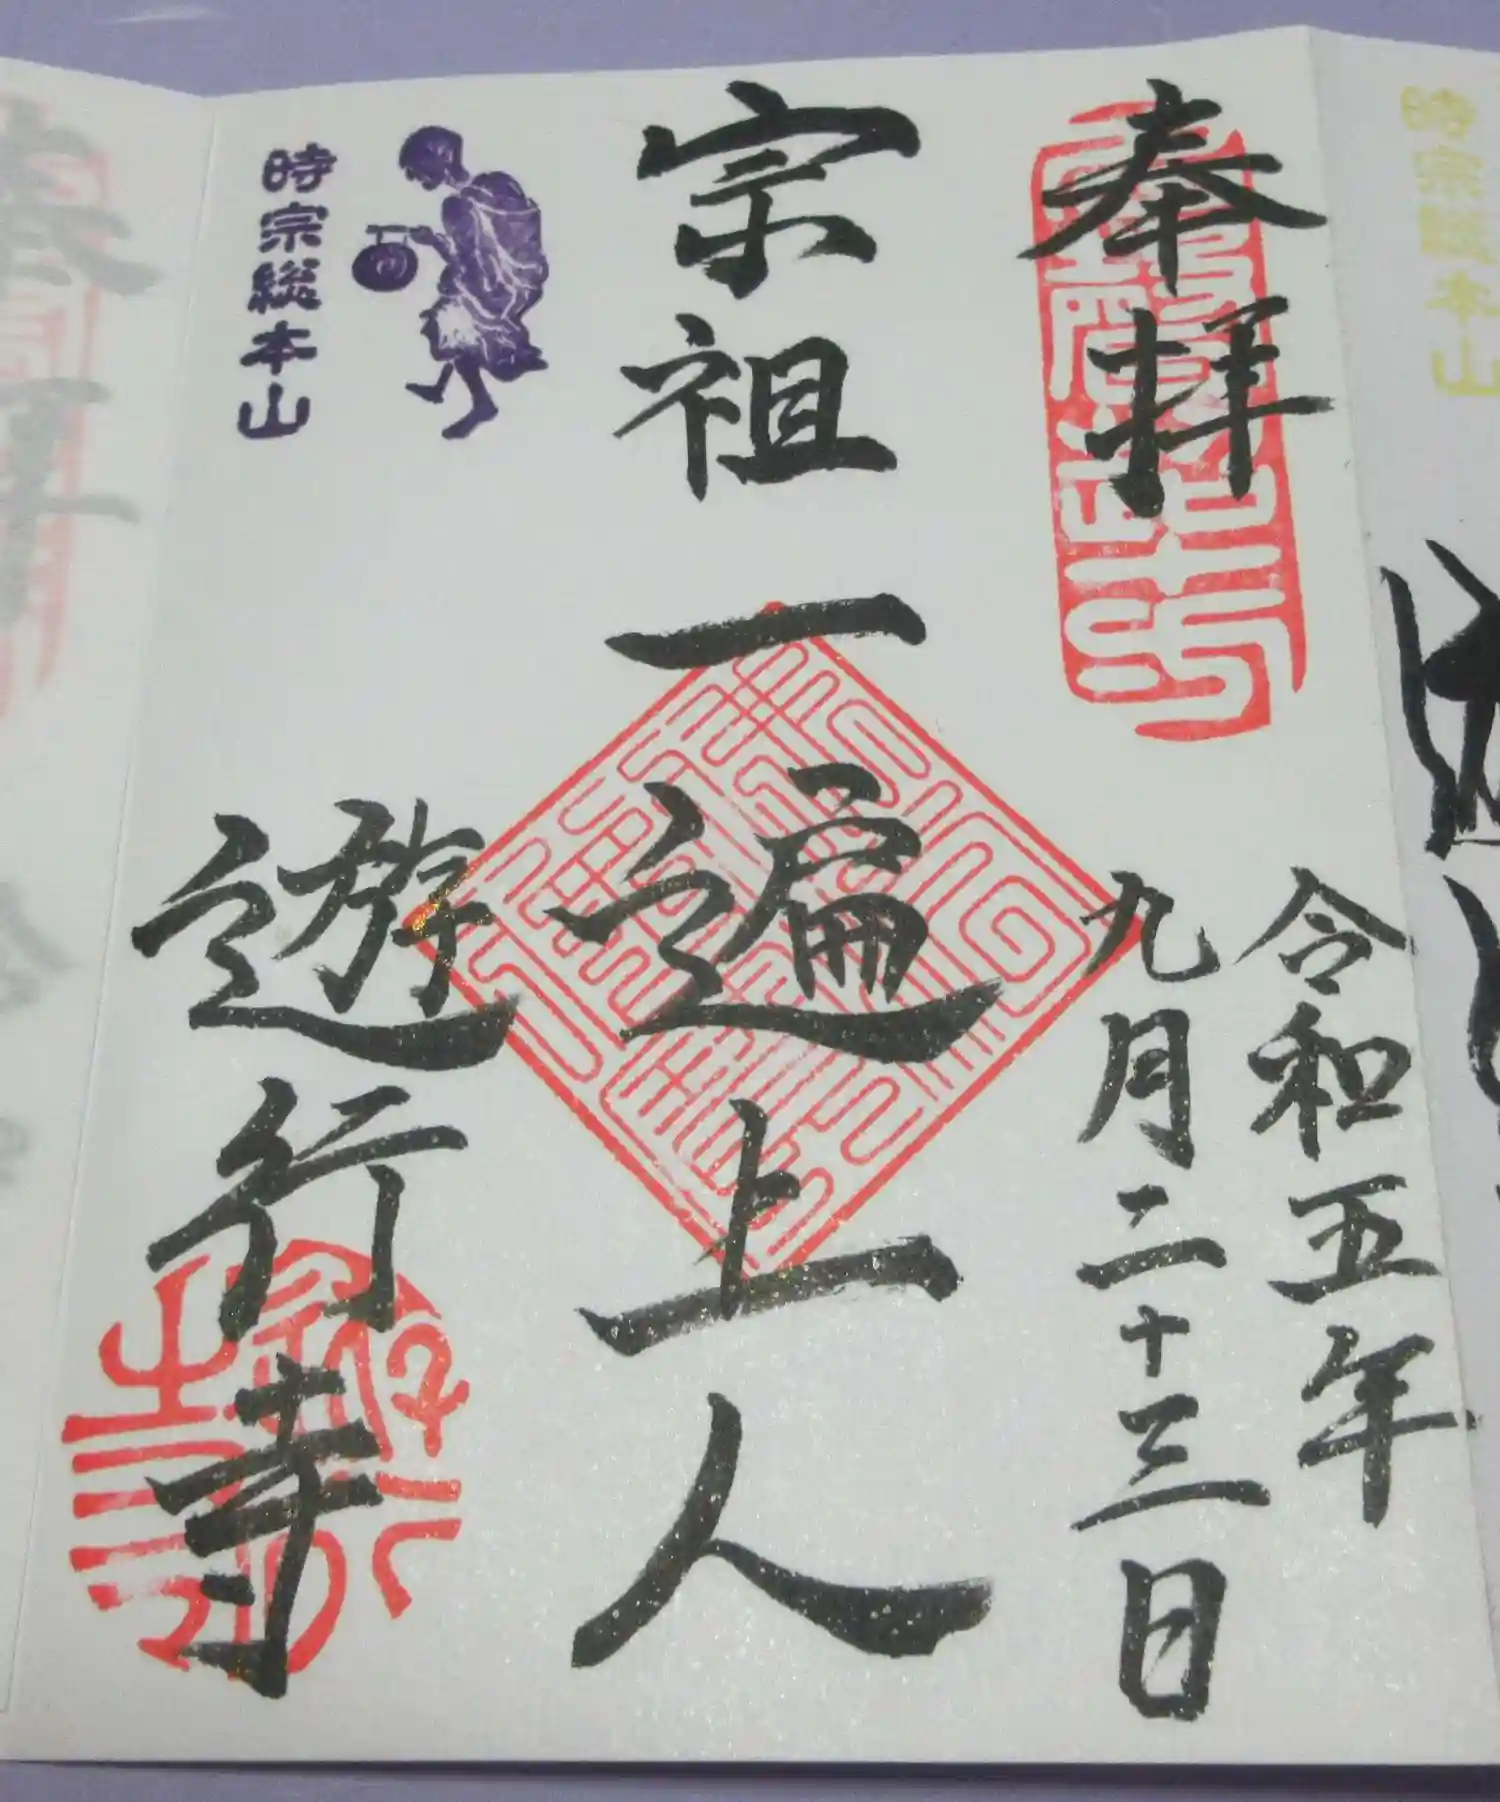 奉拝
令和五年
九月二十三日
宗祖一遍上人
時宗総本山
遊行寺
時宗総本山